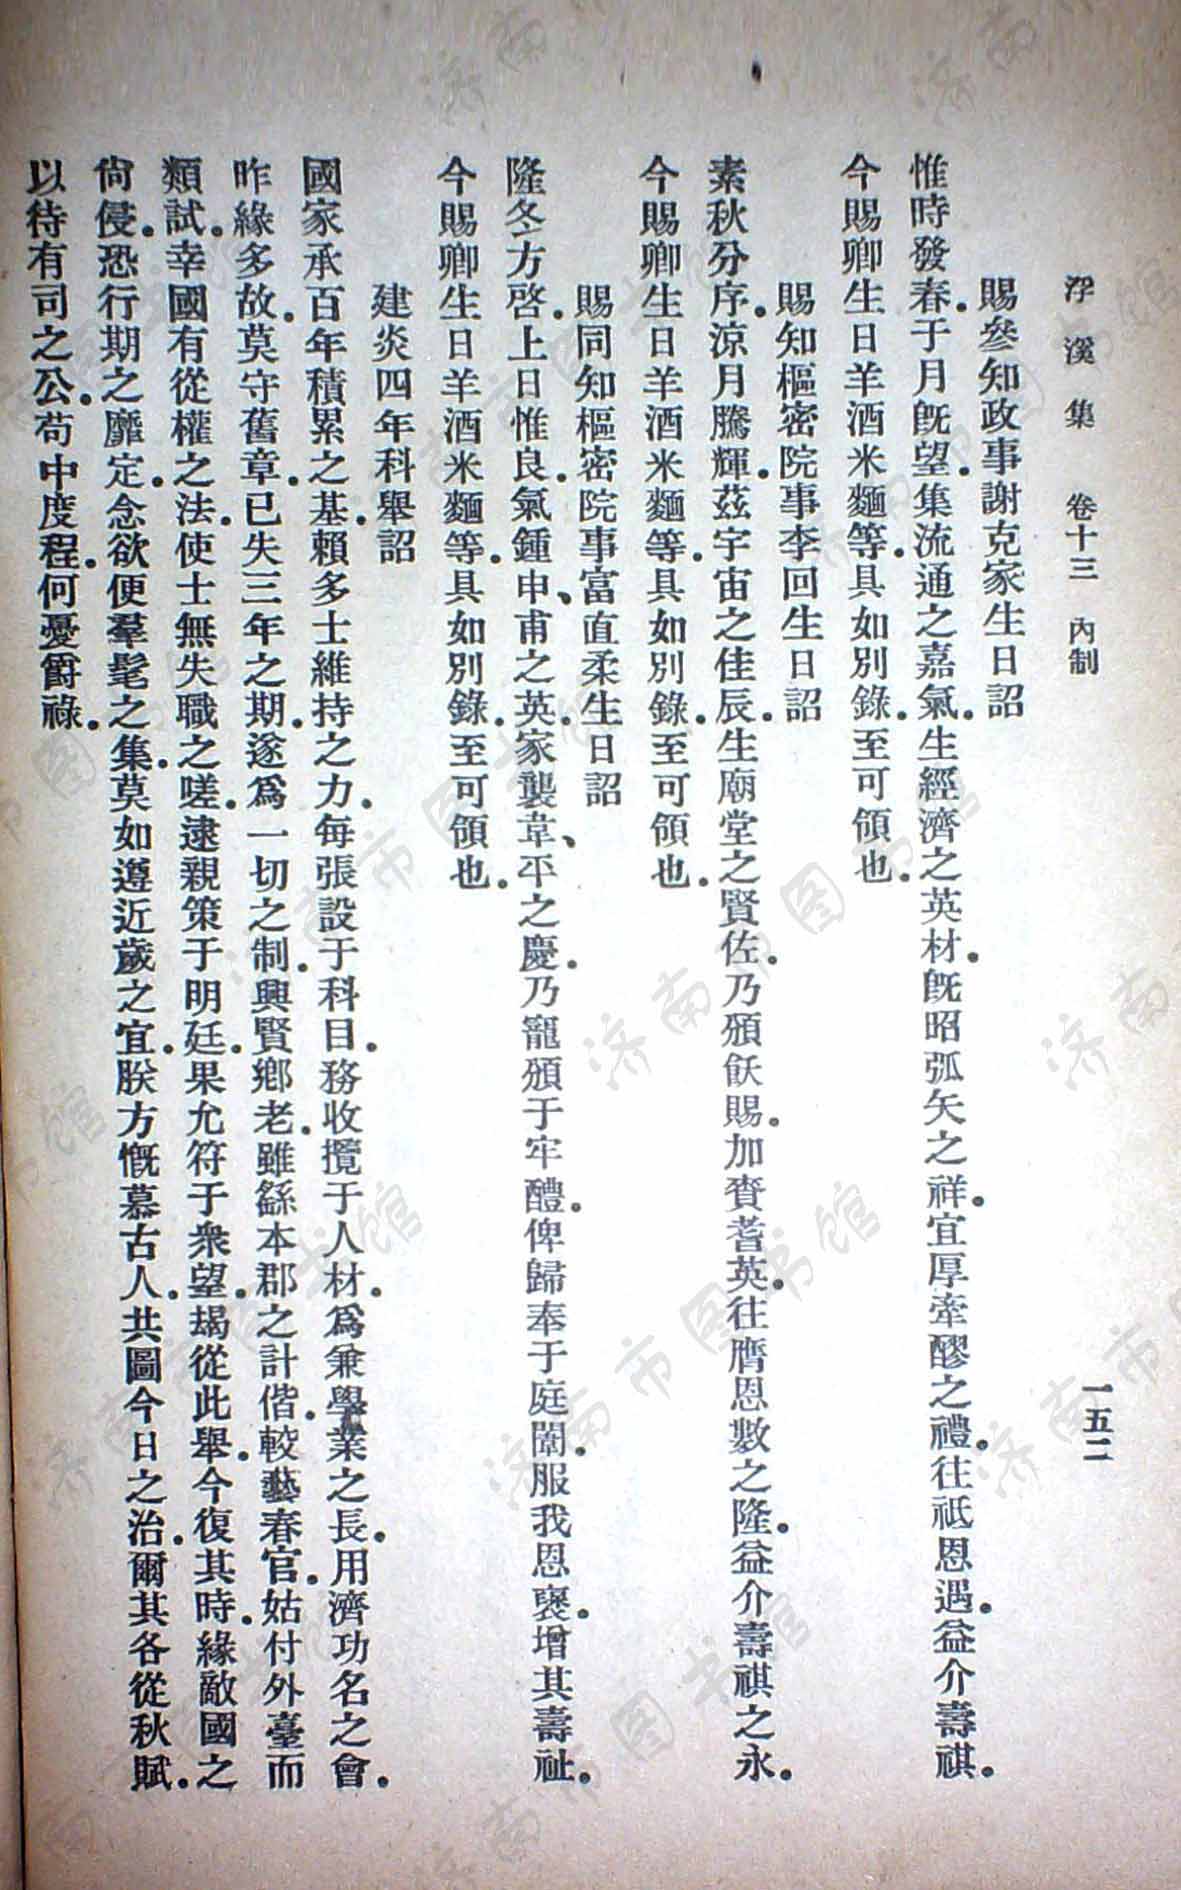 浮溪集 卷十三 內制 一五二
賜參知政事謝克家生日詔
惟時發春.于月旣望.集流通之嘉氣.生經濟之英材.旣昭弧矢之祥.宜厚牽醪之禮.往祗恩遇.益介壽祺.
今賜卿生日羊酒米麵等.具如別錄.至可領也.
賜知樞密院事李回生日詔
素秋分序.涼月騰輝.茲宇宙之佳辰.生廟堂之賢佐.乃頒飫賜.加賚耆英.往膺恩數之隆.益介壽祺之永.
今賜卿生日羊酒米麵等.具如別錄.至可領也.
賜同知樞密院事富直柔生日詔
隆冬方啓.上日惟良.氣鍾申、甫之英.家襲韋、平之慶.乃寵頒于牢醴.俾歸奉于庭闈.服我恩褒.增其壽祉.
今賜卿生日羊酒米麵等.具如別錄.至可領也.
建炎四年科舉詔
國家承百年積累之基.賴多士維持之力.每張設于科目.務收攬于人材.爲兼學業之長.用濟功名之會.
昨緣多故.莫守舊章.已失三年之期.遂爲一切之制.興賢鄉老.雖繇本郡之計偕.較藝春官.姑付外臺而
類試.幸國有從權之法.使士無失職之嗟.逮親策于明廷.果允符于衆望.朅從此舉.今復其時.緣敵國之
尙侵.恐行期之靡定.念欲便羣髦之集.莫如遵近歲之宜.朕方慨慕古人.共圖今日之治.爾其各從秋賦.
以待有司之公.苟中度程.何憂爵祿.